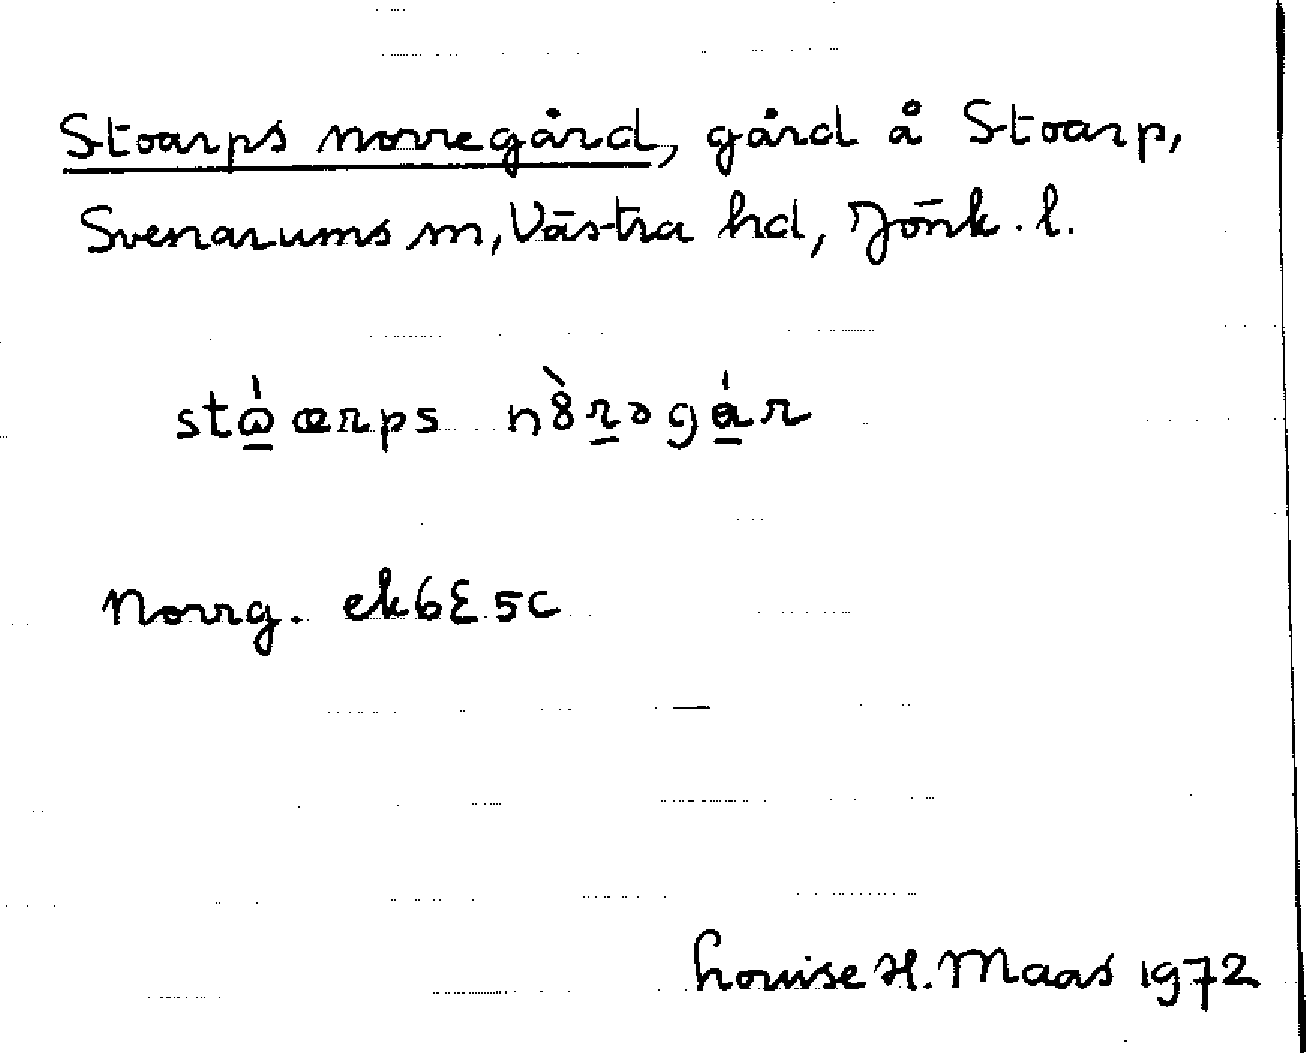 Stoarps norregård, gård å Stoarp,
Svenarums sn, Västra hd, Jönk. l.
stώ̲ ærps n8̀r̲əgá̲r
Norrg. ek6E5c
Louise H. Maas 1972